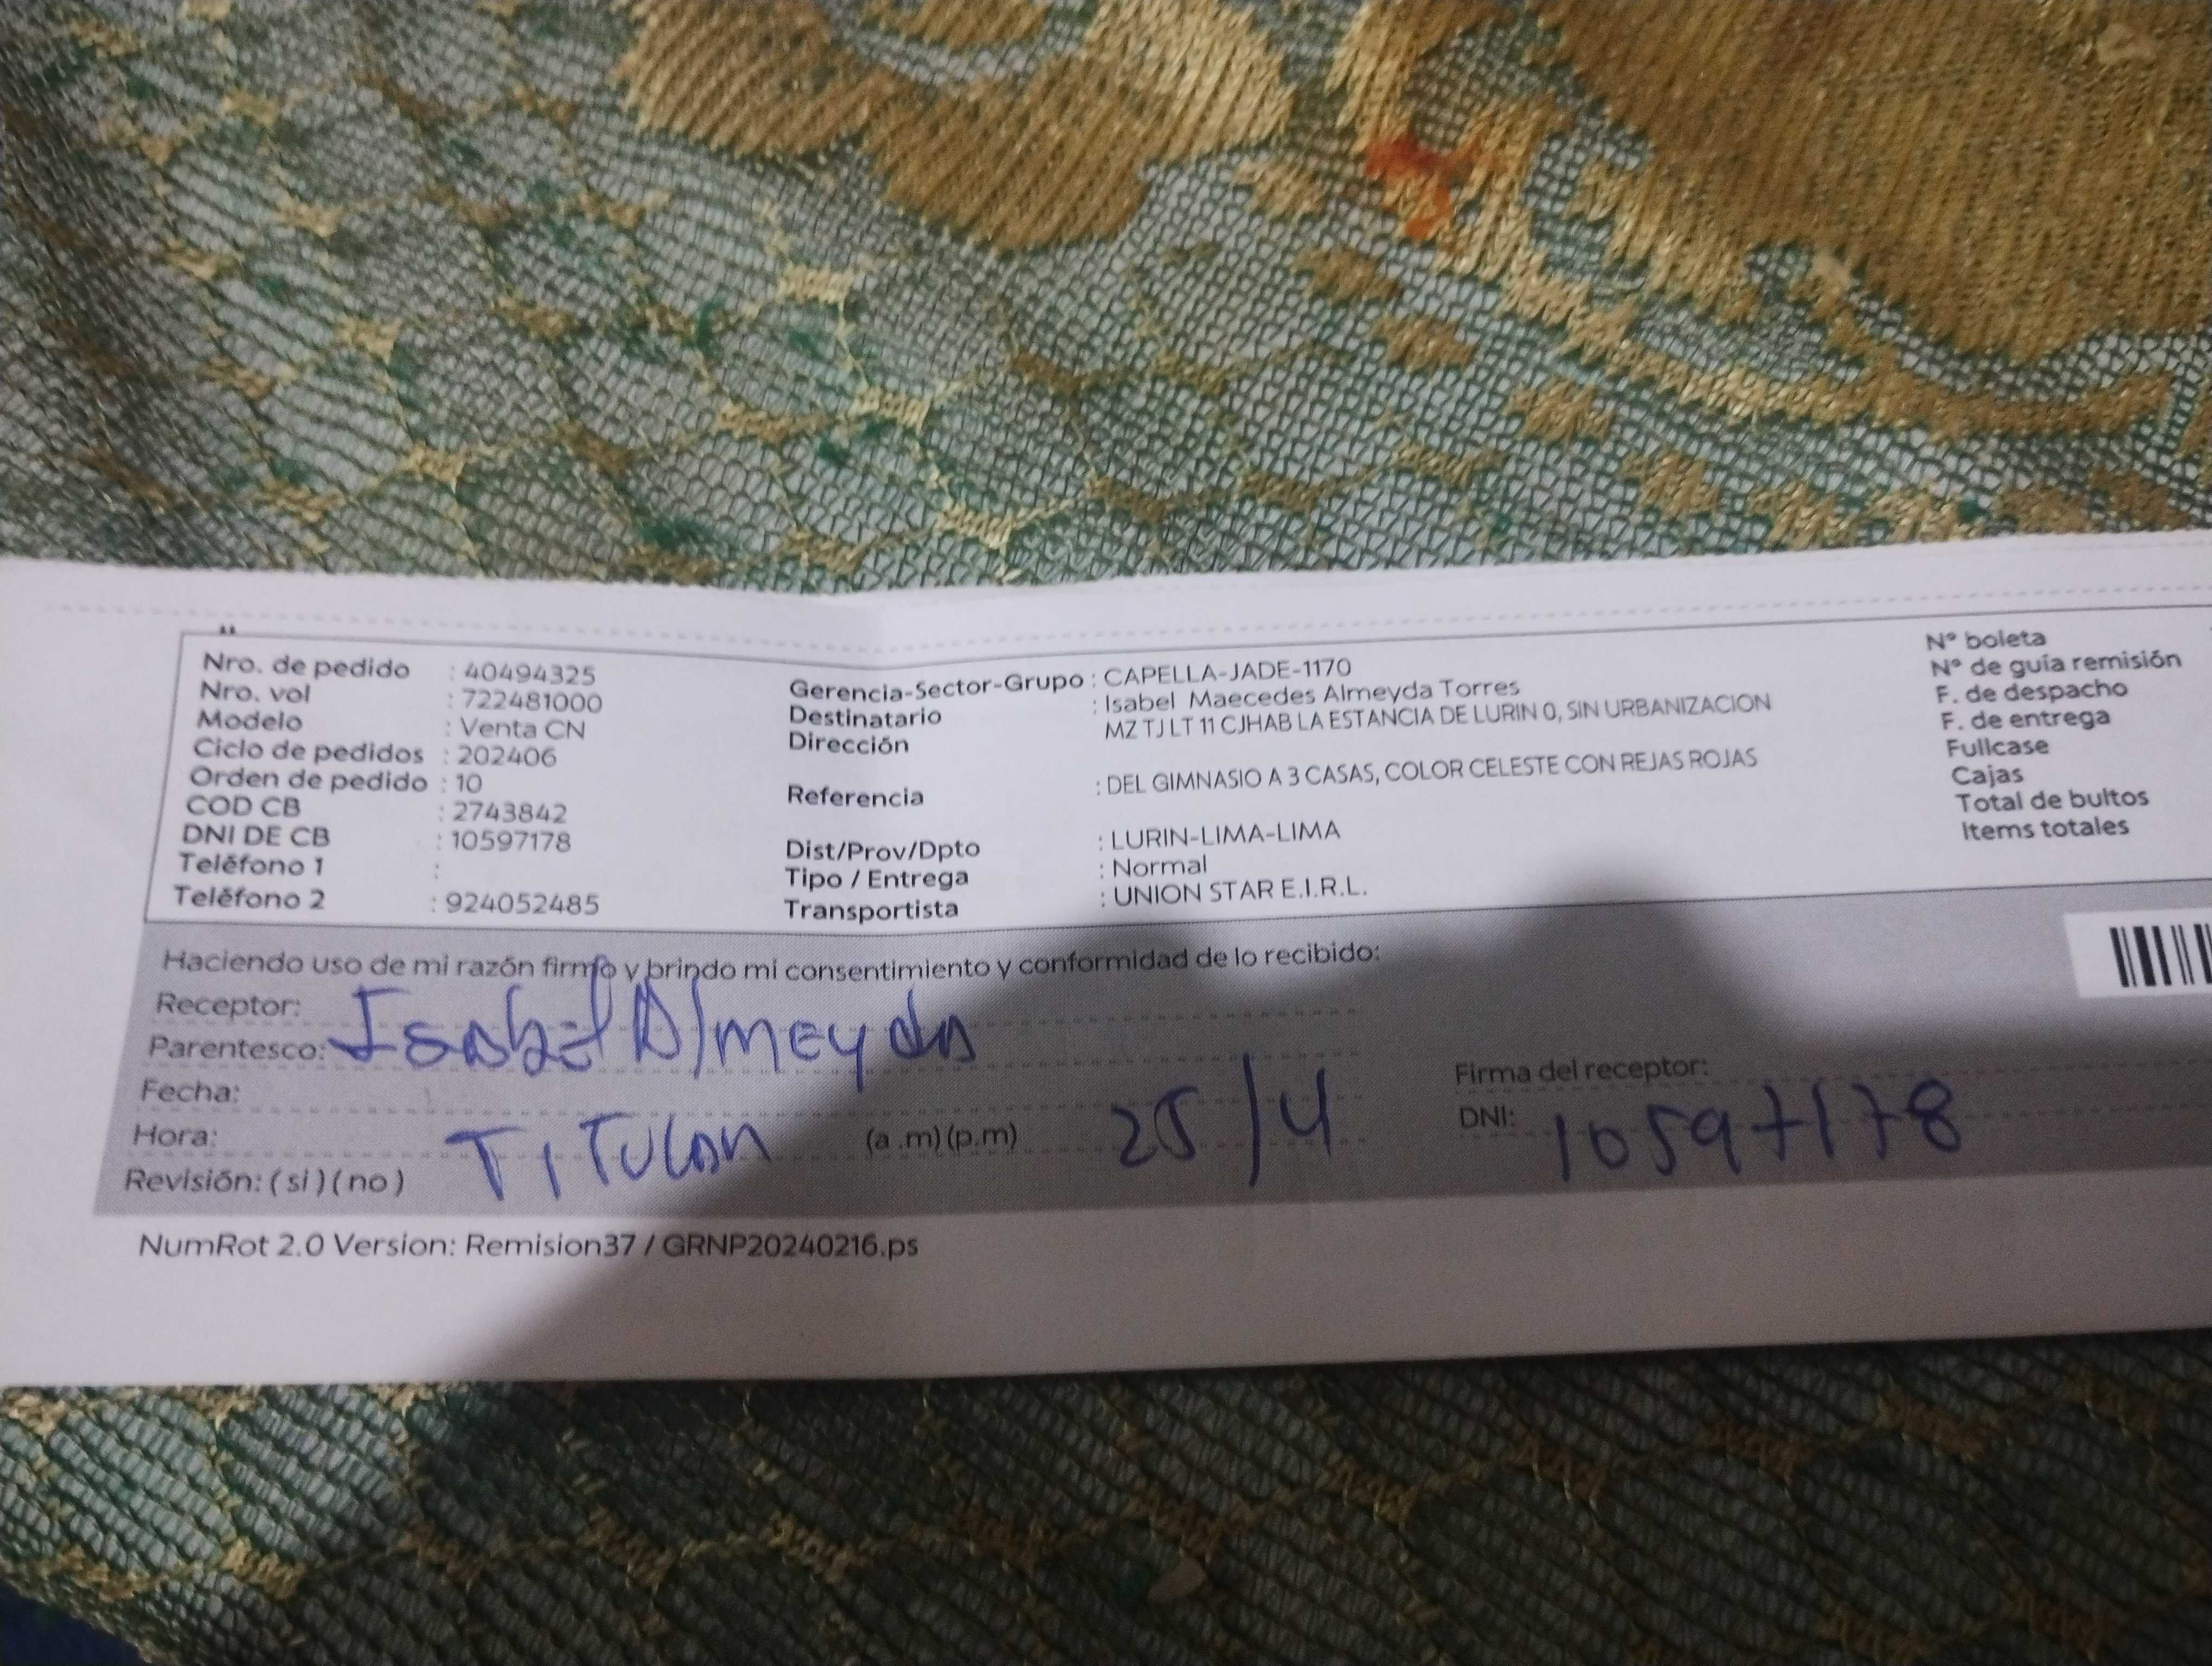 Nro. de pedido : 40494325
Nro. vol : 722481000
Modelo : Venta CN
Ciclo de pedidos : 202406
Orden de pedido : 10
COD CB : 2743842
DNI DE CB : 10597178
Teléfono 1 :
Teléfono 2 : 924052485
Gerencia-Sector-Grupo : CAPELLA-JADE-1170
Destinatario : Isabel Maecedes Almeyda Torres
Dirección MZ TJ LT 11 CJHAB LA ESTANCIA DE LURIN 0, SIN URBANIZACION
Referencia : DEL GIMNASIO A 3 CASAS, COLOR CELESTE CON REJAS ROJAS
Dist/Prov/Dpto : LURIN-LIMA-LIMA
Tipo / Entrega : Normal
Transportista : UNION STAR E.I.R.L.
N° boleta
N° de guía remisión
F. de despacho
F. de entrega
Fullcase
Cajas
Total de bultos
Items totales
Haciendo uso de mi razón firmo y brindo mi consentimiento y conformidad de lo recibido:
Receptor:
Parentesco: Isabel Almeyda
Fecha:
Hora: TITULAR (a .m) (p.m) 25/4
Revisión: ( si ) ( no )
Firma del receptor:
DNI: 10597178
NumRot 2.0 Version: Remision37 / GRNP20240216.ps